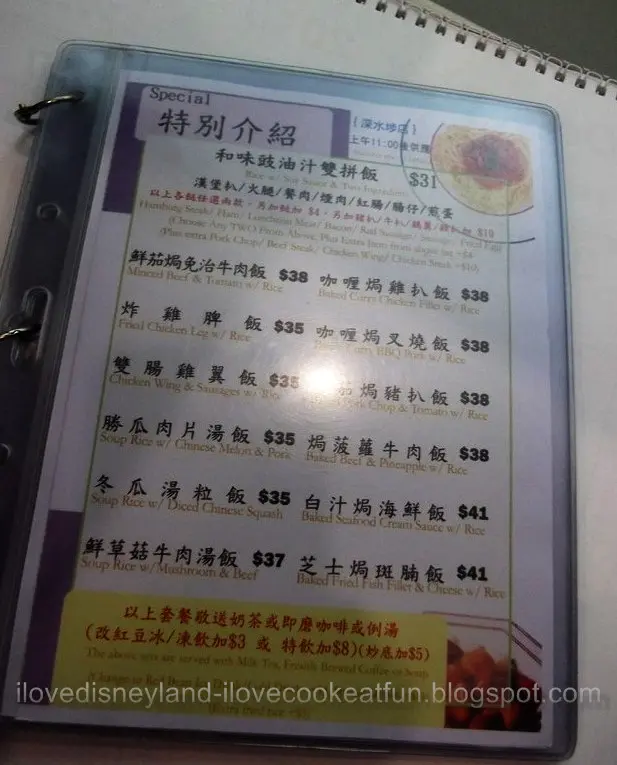 Special
特別介紹
{ 深水埗店 }
上午11:00後供應
和味豉油汁雙拼飯 $31
Rice w/ Soy Sauce & Two Ingredients
漢堡扒/火腿/餐肉/煙肉/紅腸/腸仔/煎蛋
以上各餸任選兩款,另加餸加 $4,另加豬扒/牛扒/雞翼/雞扒加 $10
(Hamburg Steak/ Ham/ Luncheon Meat/ Bacon/ Red Sausage/ Sausage/ Fried Egg
(Choose Any TWO From Above, Plus Extra Item from above
Plus extra Pork Chop/ Beef Steak/ Chicken Wing/ Chicken Steak +$10)
鮮茄焗免治牛肉飯 $38
Minced Beef & Tomato w/ Rice
咖喱焗雞扒飯 $38
Baked Curry Chicken Fillet w/ Rice
炸雞髀飯 $35
Fried Chicken Leg w/ Rice
咖喱焗叉燒飯 $38
BBQ Pork w/ Rice
雙腸雞翼飯 $35
Chicken Wing & Sausages w/ Rice
茄焗豬扒飯 $38
Pork Chop & Tomato w/ Rice
勝瓜肉片湯飯 $35
Soup Rice w/ Chinese Melon & Pork
焗菠蘿牛肉飯 $38
Baked Beef & Pineapple w/ Rice
冬瓜湯粒飯 $35
Soup Rice w/ Diced Chinese Squash
白汁焗海鮮飯 $41
Baked Seafood Cream Sauce w/ Rice
鮮草菇牛肉湯飯 $37
Soup Rice w/ Mushroom & Beef
芝士焗斑腩飯 $41
Baked Fried Fish Fillet & Cheese w/ Rice
以上套餐敬送奶茶或即磨咖啡或例湯
(改紅豆冰/凍飲加$3 或 特飲加$8)(炒底加$5)
The above sets are served with Milk Tea, Freshly Brewed Coffee or Soup
ilovedisneyland-ilovecookeatfun.blogspot.com